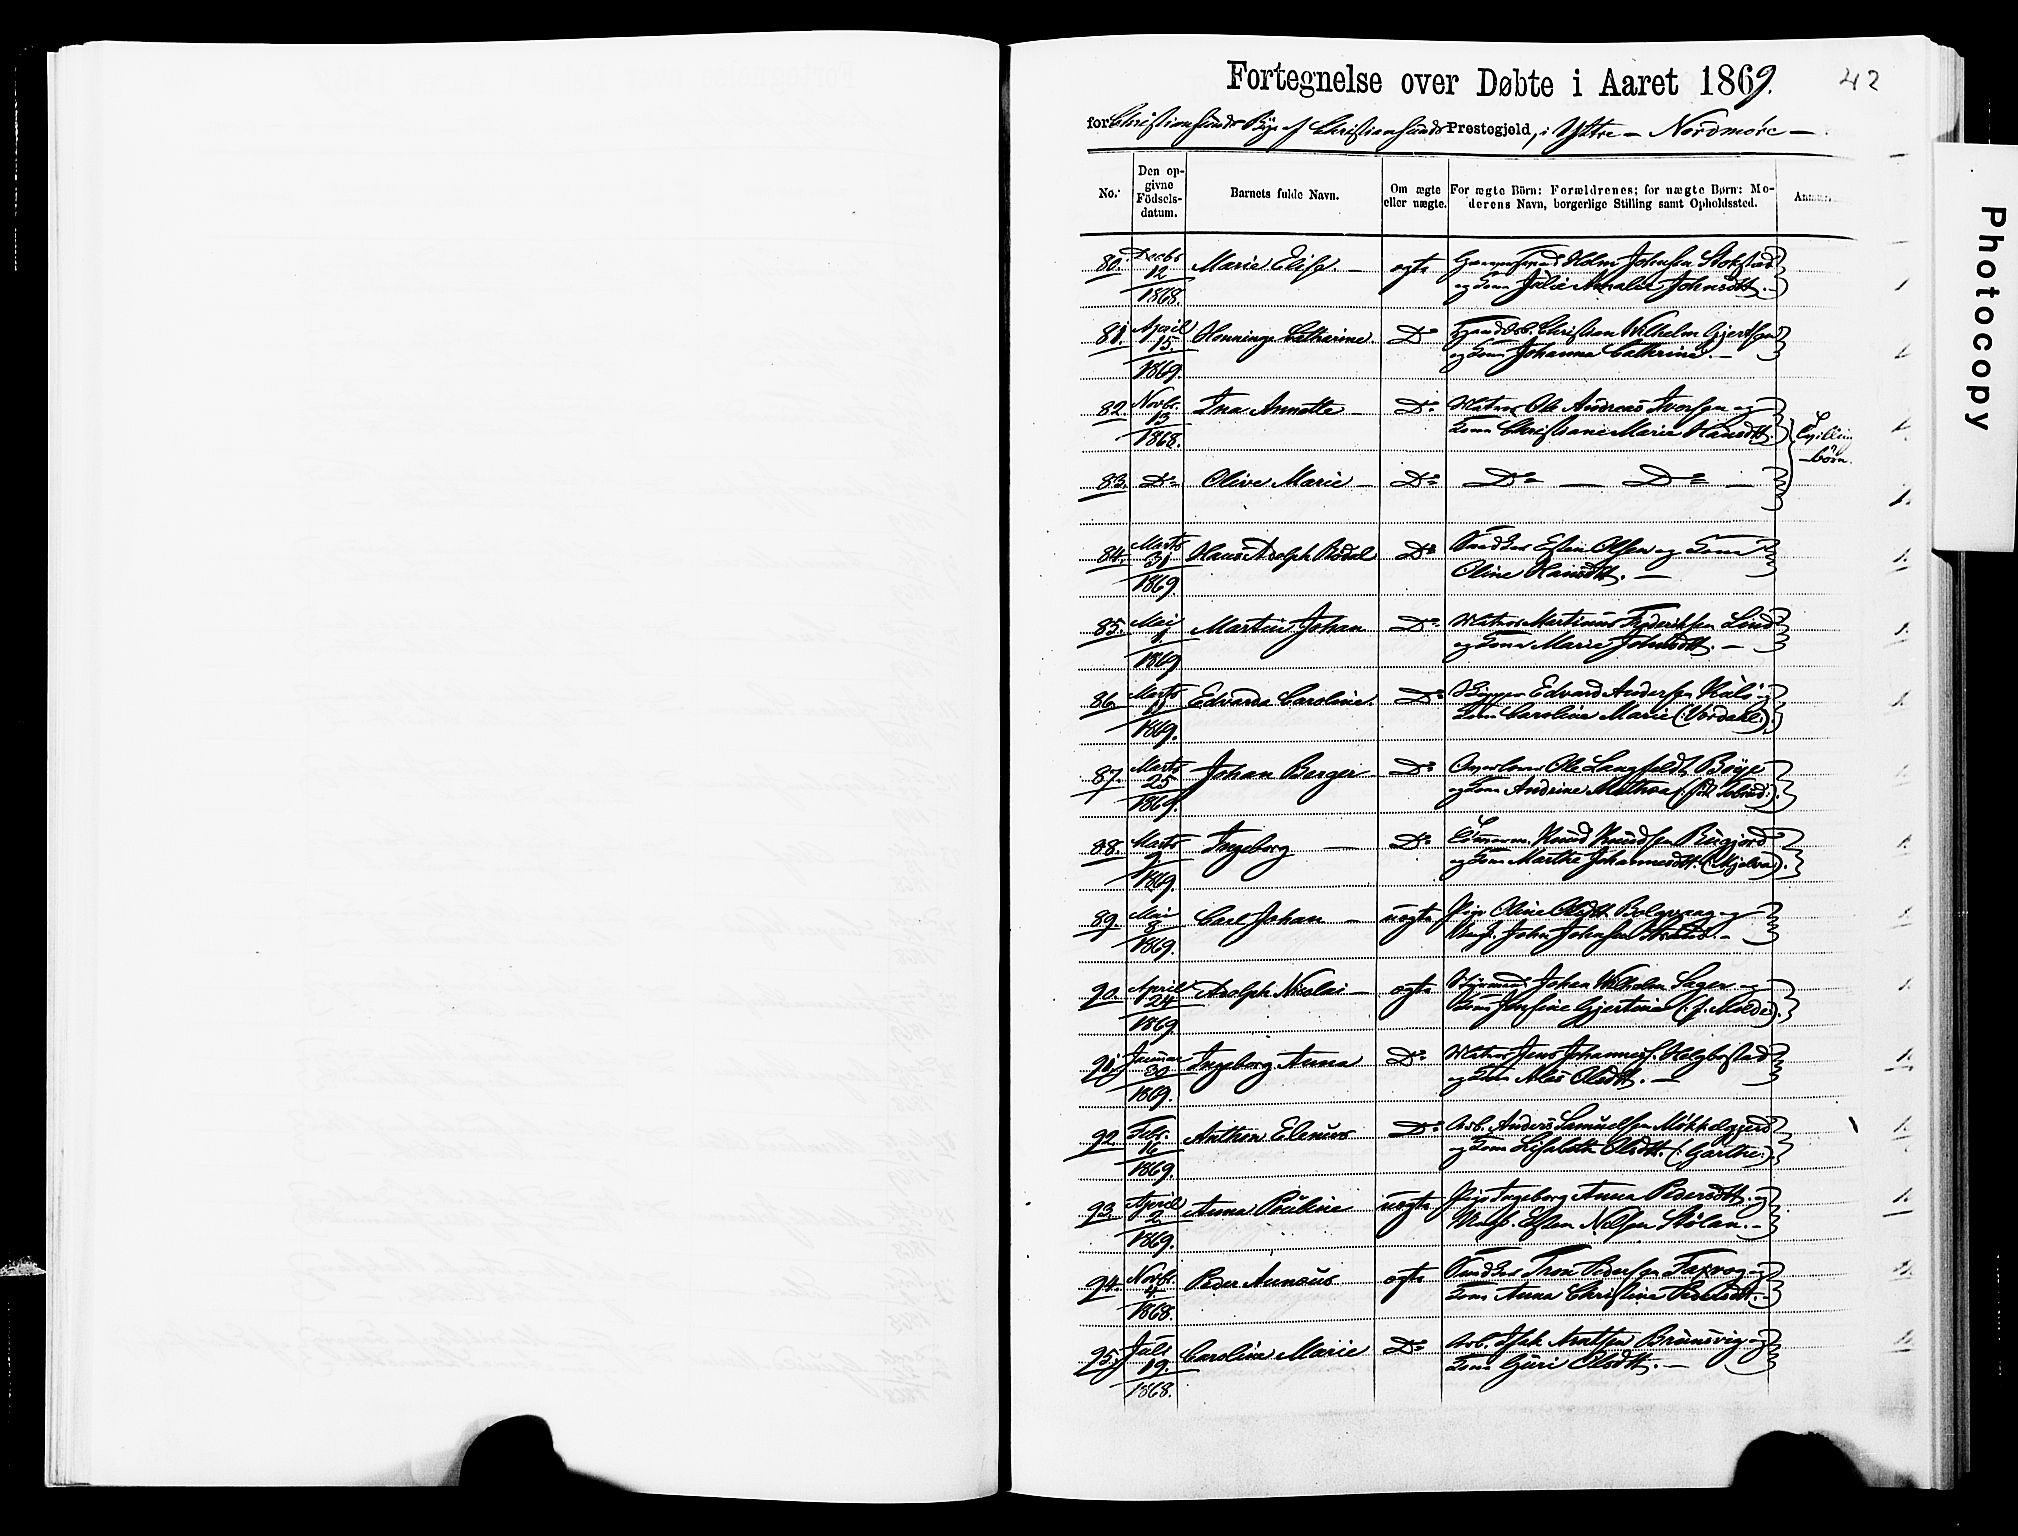 Fortegnelse over Døbte i Aaret 1869.
42
for Christiansunds By af Christiansunds Prestegjeld, i Yttre – Nordmøre –
No.
Den op-
givne
Födsels-
datum.
Barnets fulde Navn.
Om ægte
eller uægte.
For ægte Börn: Forældrenes; for uægte Børn: Mo-
derens Navn, borgerlige Stilling samt Opholdssted.
80. Decbr 12 1868. Marie Elise. – ægte
Holm Johnsen Stokstad
og Kone Julie Amalie Johnsdtt. –
81. April 15. 1869. Henninge Catharine. Do
Christian Wilhelm Gjertsen
og Kone Johanna Cathrine. –
82. Novbr. 13 1868. Ina Annette – Do.
Matros Ole Andreas Iversen og
Kone Christiane Marie Hansdtt.
Tvilling
börn.
83. Do Olive Marie – Do Do – Do –
84. Marts 31 1869. Hans Adolph Rödal Do
Esten Olsen og Kone
Oline Hansdtt. –
85. Mai 1. 1869 Martin Johan Do.
Matros Martinus Frederiksen Lind
og Kone Marie Johnsdtt. –
86. Marts 11 1869. Edvarda Caroline. Do
Skipper Edvard Andersen Kalö og
Kone Caroline Marie (:Vordahl:).
87. Marts 25 1869. Johan Berger Do
Ole Langfeldt Böye
og Kone Andrine Mathea
88. Marts 2 1869. Ingeborg – Do
Tömmerm. Knud Knudsen Bugjord
og Kone Marthe Johannesdtt.
89. Mai 8 1869. Carl Johan – uægte
Pige Oline Olsdtt. Bolgvaag og
Ungk. John Johnsen
90. April 24 1869. Adolph Nicolai – ægte
Styrmand Johan Wilhelm Lager og
Kone Josefine Gjertine (: f. Molde:).
91. Januar 30 1869. Ingeborg Anna Do
Matros Jens Johanness. Helgbostad
og Kone Olsdtt. –
92. Febr. 16 1869. Anthon Elenius Do
Arb. Anders Samuelsen Mökkelgjerd
og Kone Lisabeth Olsdtt. (: Garthe:).
93. April 2 1869. Anna Pauline uægte
Pige Ingeborg Anna Pedersdtt. og
Ungk. Esten Nilsen Stölan. –
94. Novbr. 4. 1868. Peder Annæus ægte
Tron Pedersen Faxvog og
Kone Anna Christine
95. Juli 19. 1868. Caroline Marie Do
Arb. Brunsvig og
Kone Guri Olsdtt. –
Photocopy